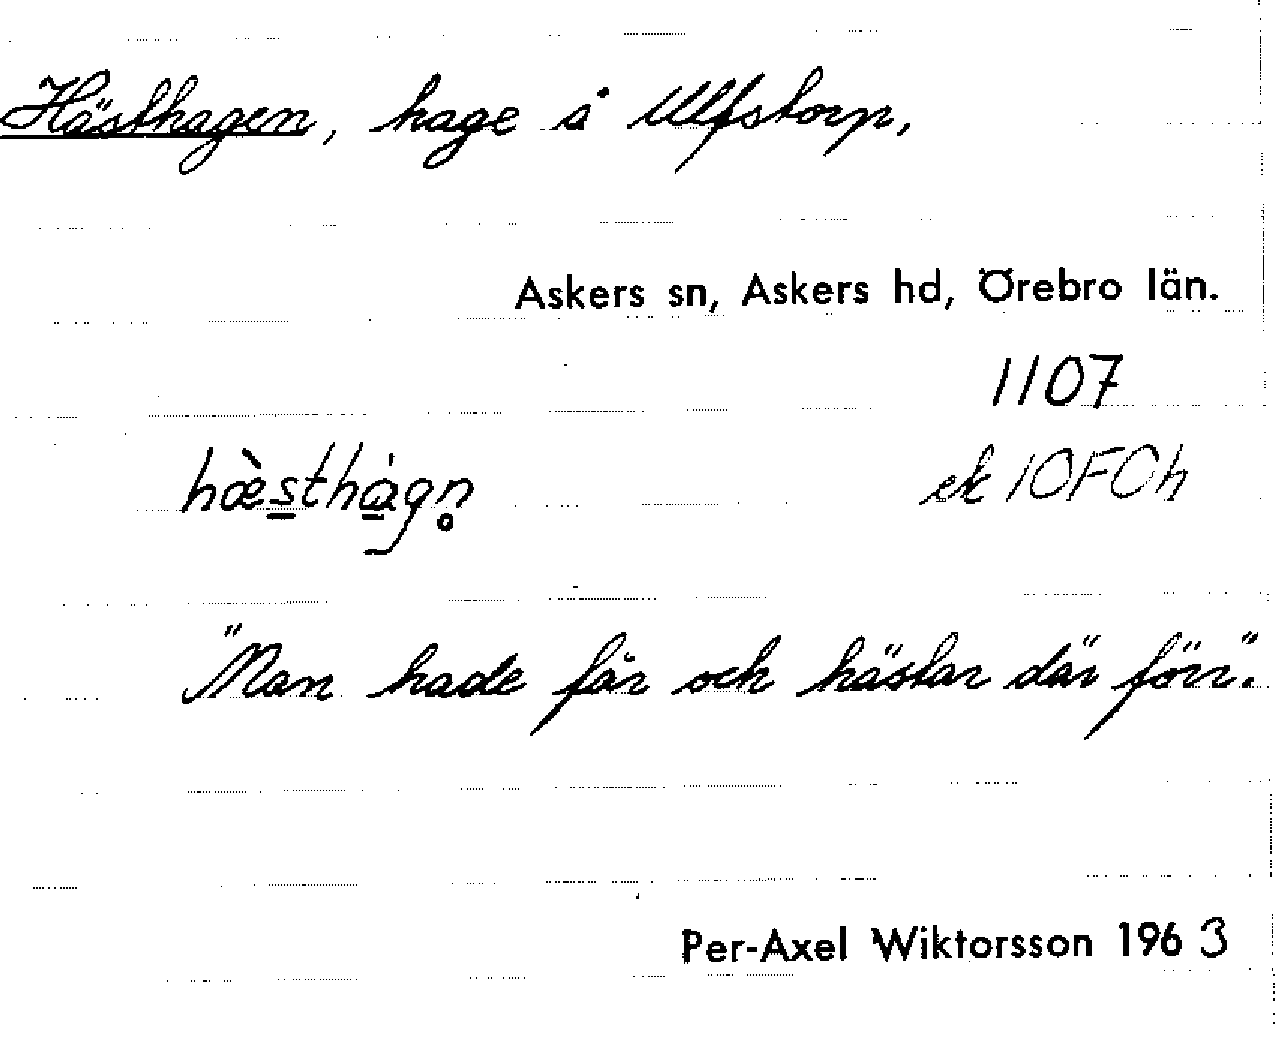 Hästhagen, hage å Ulfstorp,
Askers sn, Askers hd, Örebro län.
1107
hæ̀sthàgn̥
ek 10F0h
"Man hade får och hästar där förr".
Per-Axel Wiktorsson 1963